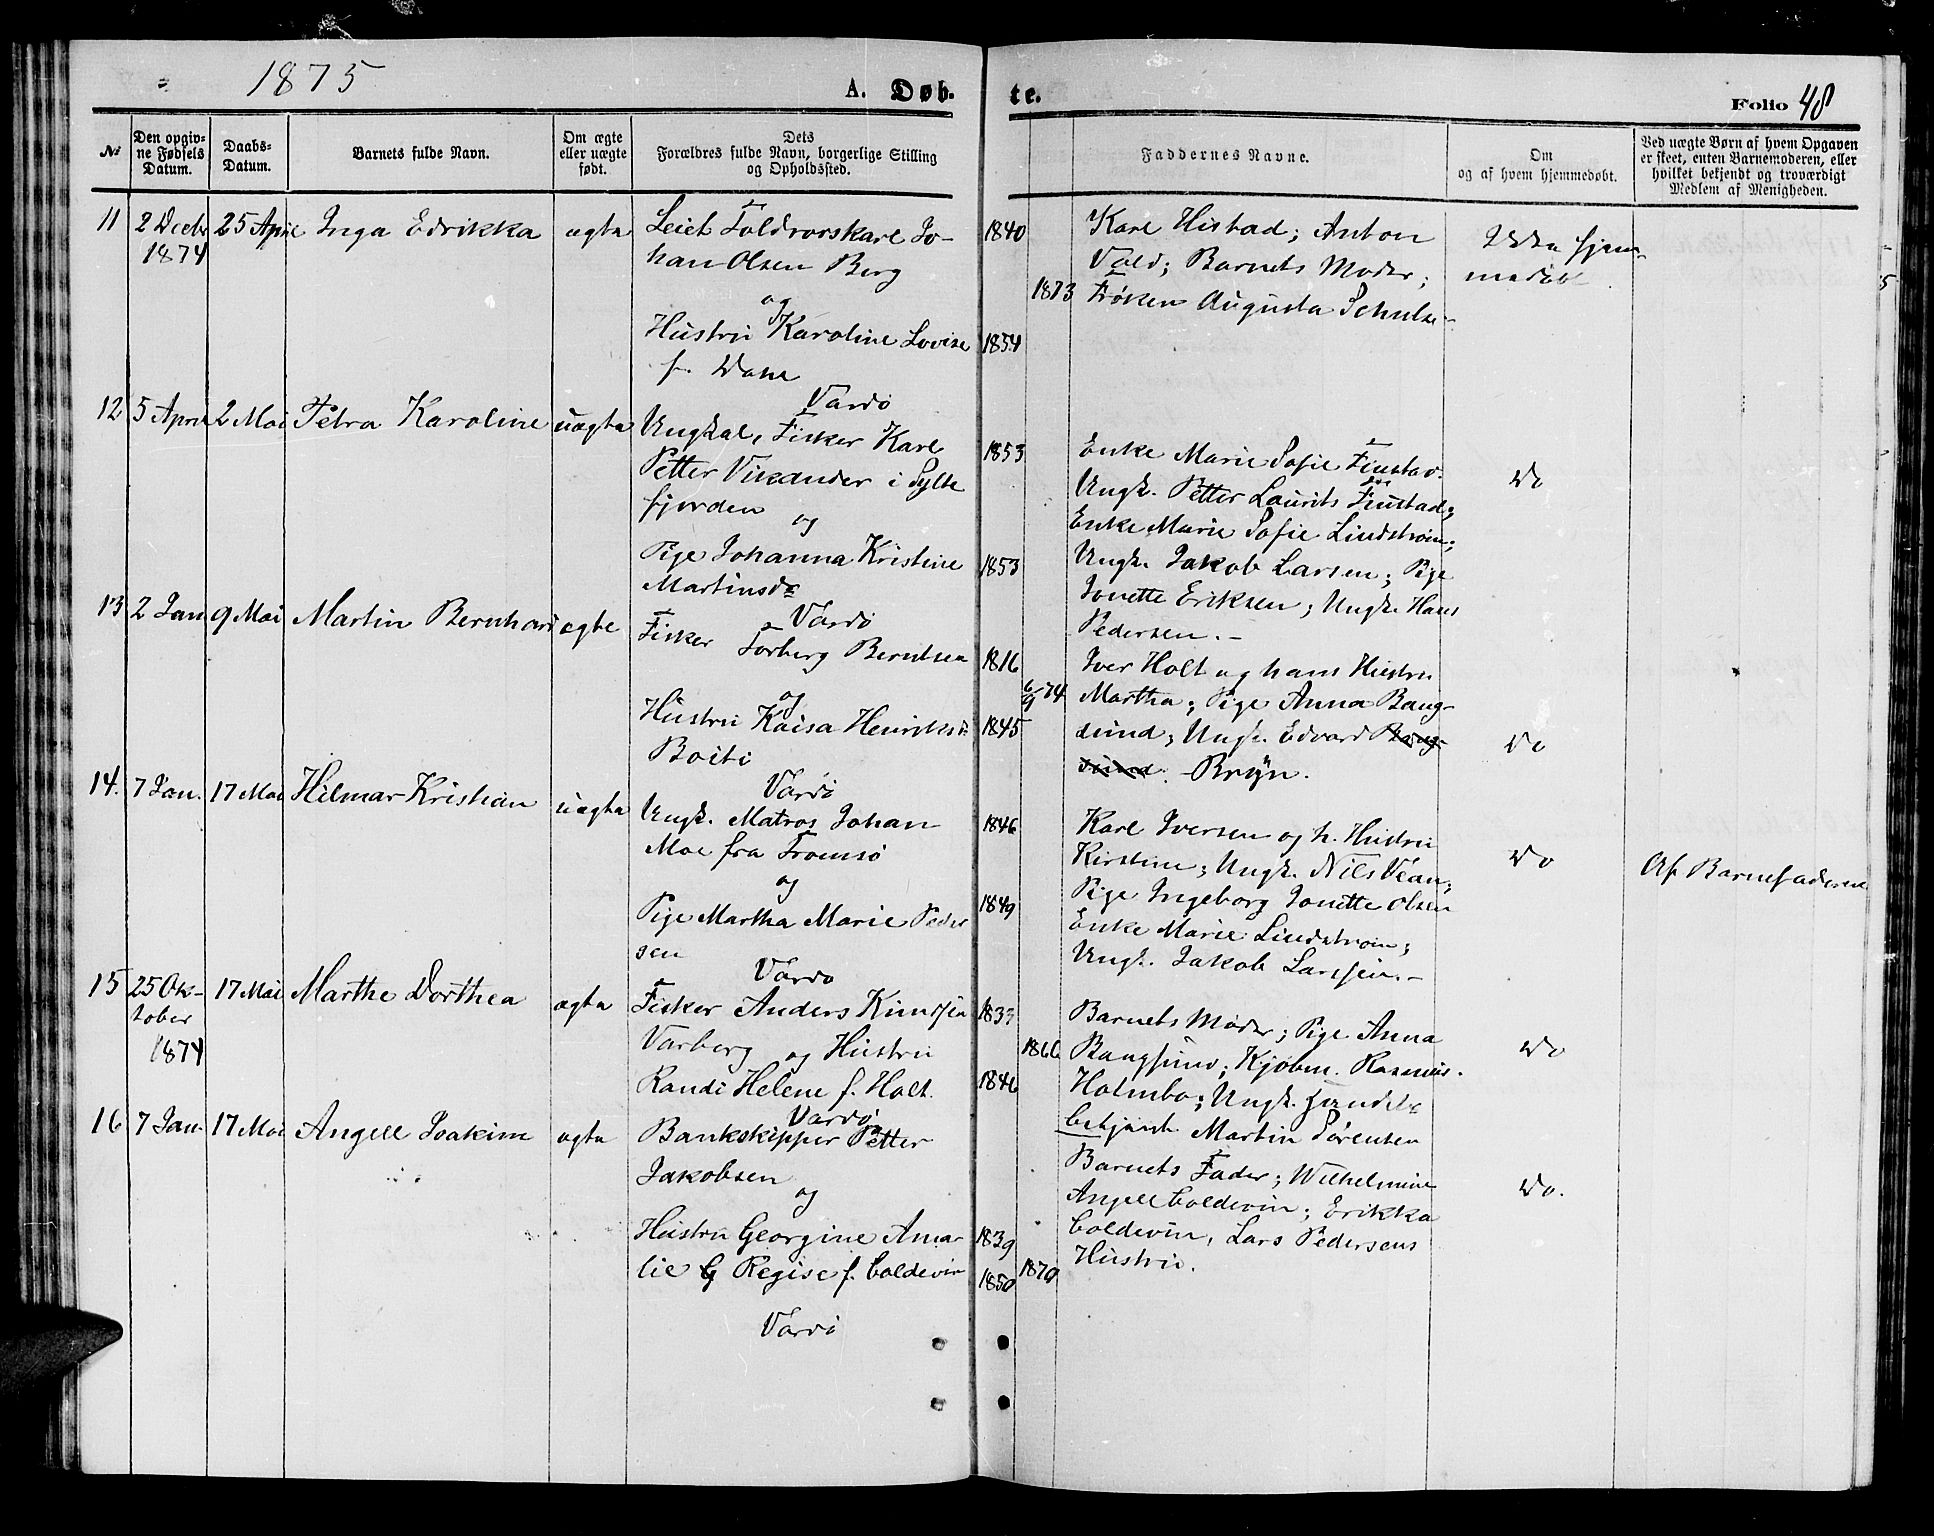 1875
A. Døb-
te.
Folio 48
№
Den opgiv-
ne Fødsels
Datum.
Daabs-
Datum.
Barnets fulde Navn.
Om ægte
eller uægte
født.
Dets
Forældres fulde Navn, borgerlige Stilling
og Opholdssted.
Faddernes Navne.
Om
og af hvem hjemmedøbt.
Ved uægte Børn af hvem Opgaven
er skeet, enten Barnemoderen, eller
hvilket bekjendt og troværdigt
Medlem af Menigheden.
11
2 Decbr
1874
25 April
Inga Edrikka
ægta
Toldrorskarl Jo-
han Olsen Berg
og
Hustru Karoline Lovise
f. Dane
Vardö
1840
1854
1873
Karl Histad; Anton
Vold; Barnets Moder;
Fröken Augusta Schulse
Ikke hjem-
medöbt
12
5 April
2 Mai
Petra Karoline
uægta
Ungkal, Fisker Karl
Petter Vikander i Sylte
fjorden
og
Pige Johanna Kristine
Martinsdr
Vardö
1853
1853
Enke Marie Sofie Finstad
Ungk. Petter Laurits Finstad;
Enke Marie Sofie Lindström;
Ungk. Jakob Larsen; Pige
Jonette Eriksen; Ungk. Hans
Pedersen.-
Do
13
2 Jan
9 Mai
Martin Bernhard
ægte
Fisker Torberg Berntsen
og
Hustru Kaisa Henriksdr
Boiti
Vardö
1816
1845
6/9 74
Iver Holt og hans Hustru
Martha; Pige Anna Bang-
sund; Ungk. Edvard Bang-
sund. Bryn.
Do
14.
7 Jan.
17 Mai
Hilmar Kristian
uægta
Ungk. Matros Johan
Moe fra Tromsö
og
Pige Martha Marie Peder
sen
Vardö
1846
1849
Karl Iversen og h. Hustru
Kirstine; Ungk. Nils Vean;
Pige Ingeborg Jonette Olsen
Enke Marie Lindström;
Ungk. Jakob Larssen.-
Do
Af Barnefaderen
15
25 Ok-
tober
1874
17 Mai
Marthe Dorthea
ægta
Fisker Anders Knudsen
Varberg og Hustru
Randi Helene f. Holt.
Vardö
1833
1846
1866
Barnets Moder; Pige Anna
Bangsund; Kjöbm. Rasmus
Holmbo; Ungk. Handels
betjent Martin Sörensen
Do
16
7 Jan.
17 Mai
Angell Joakim
ægta
Bankskipper Petter
Jakobsen
og
Hustru Georgine Ama-
lie G Regise f. Coldevin
Vardö
1839
1850
1870
Barnets Fader; Wilhelmine
Angell Coldevin; Erikka
Coldevin, Lars Pedersens
Hustru.
Do.